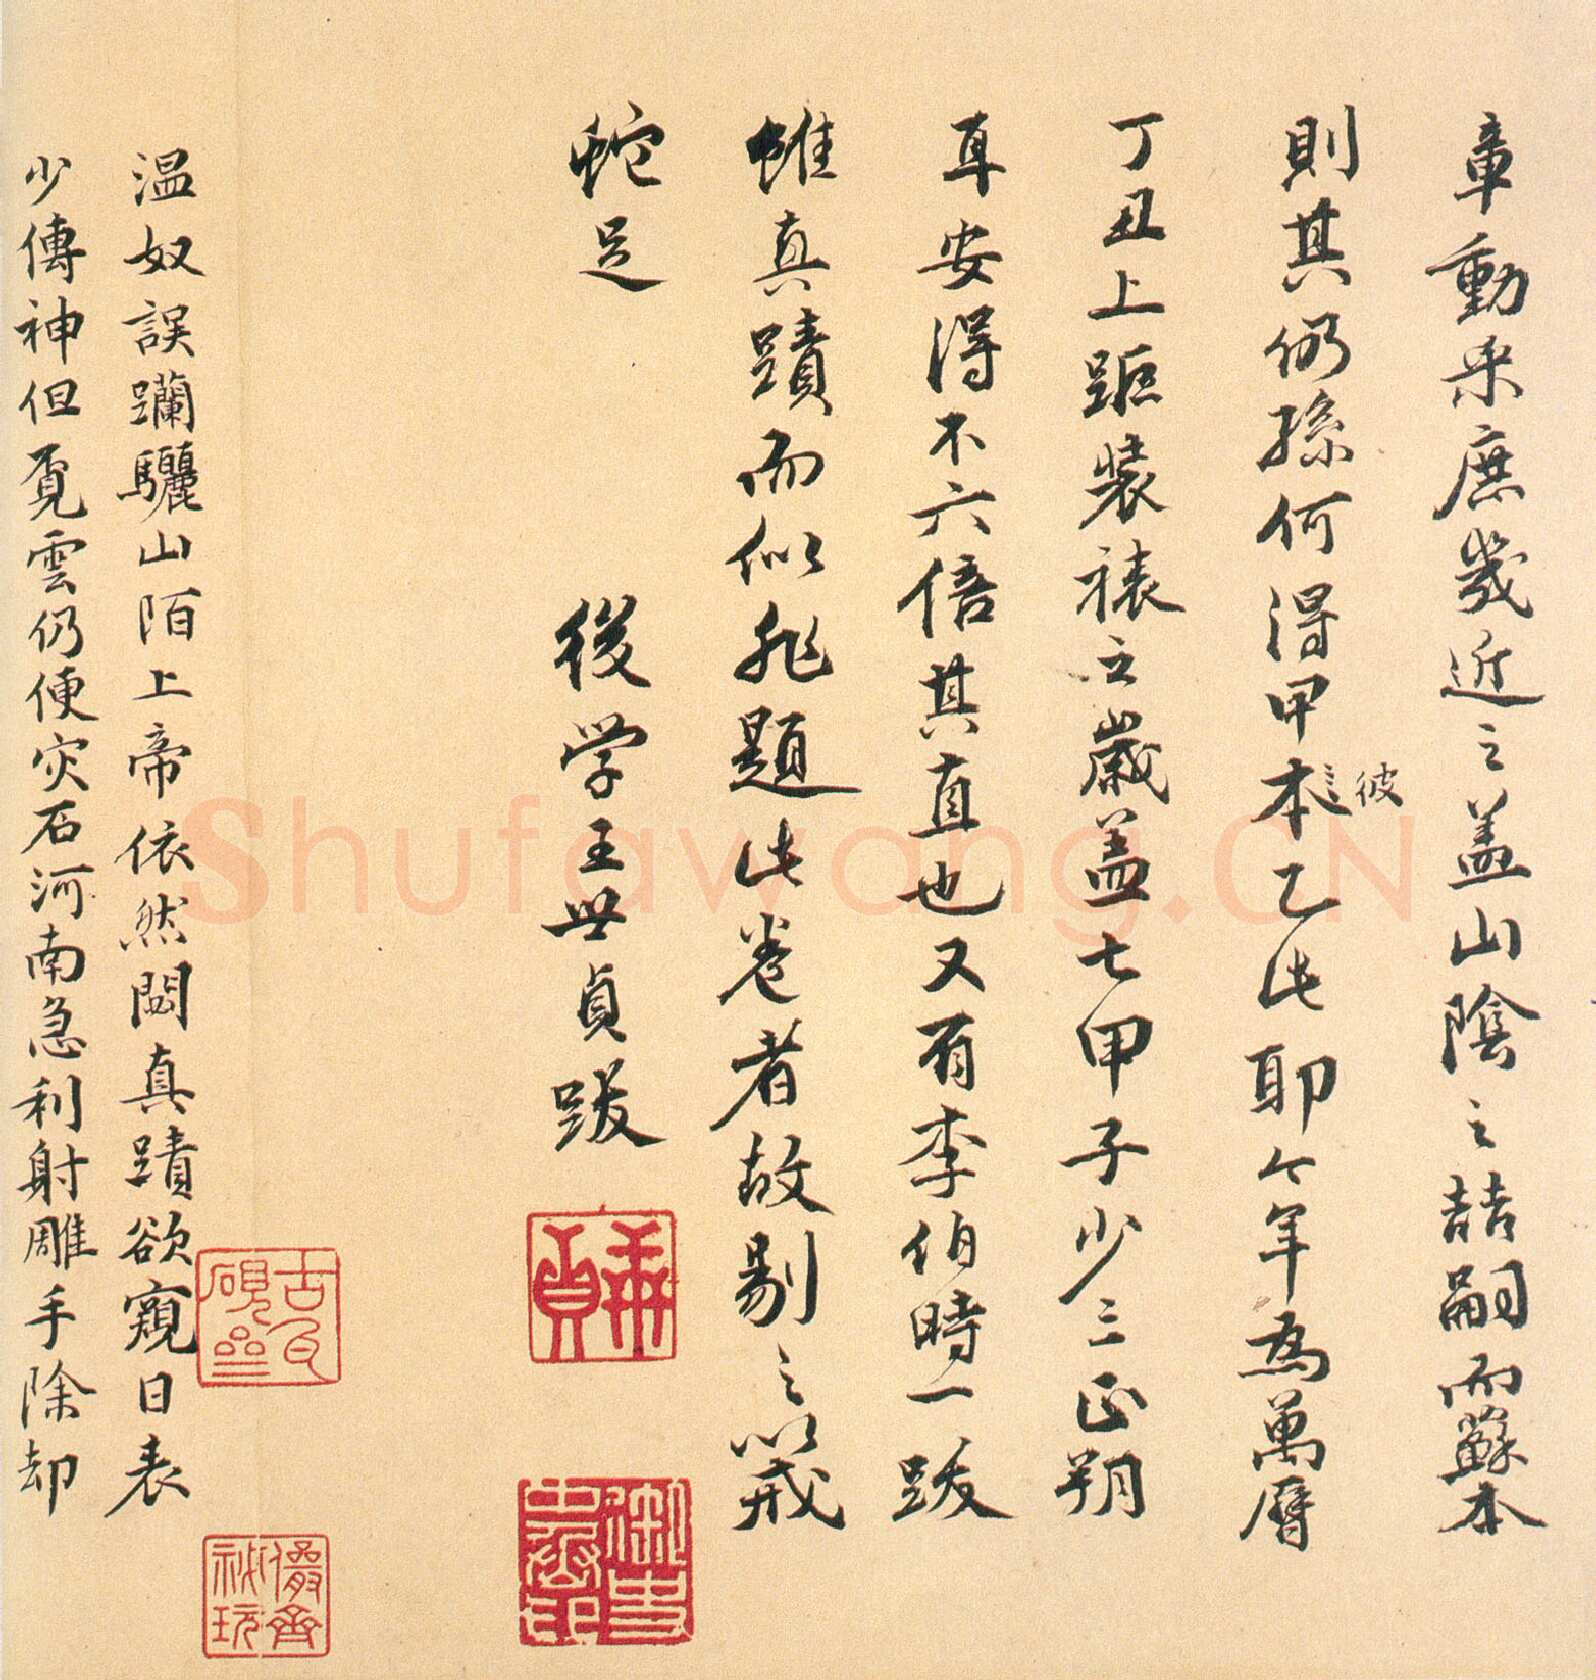 章動采庶幾近之蓋山陰之喆嗣而蘇本
則其仍孫何得甲本乙此耶今年為萬曆
彼
丁丑上距裝裱之歲蓋七甲子少三正朔
耳安得不六倍其直也又有李伯時一跋
雖真蹟而似非題此卷者故剔之以戒
蛇足
後学王世貞跋
溫奴誤躢驪山陌上帝依然閟真蹟欲窺日表
少傳神但覔雲仍便灾石河南急利射雕手除却
古瓦硯齋
儼齋秘玩
Shufawang.CN